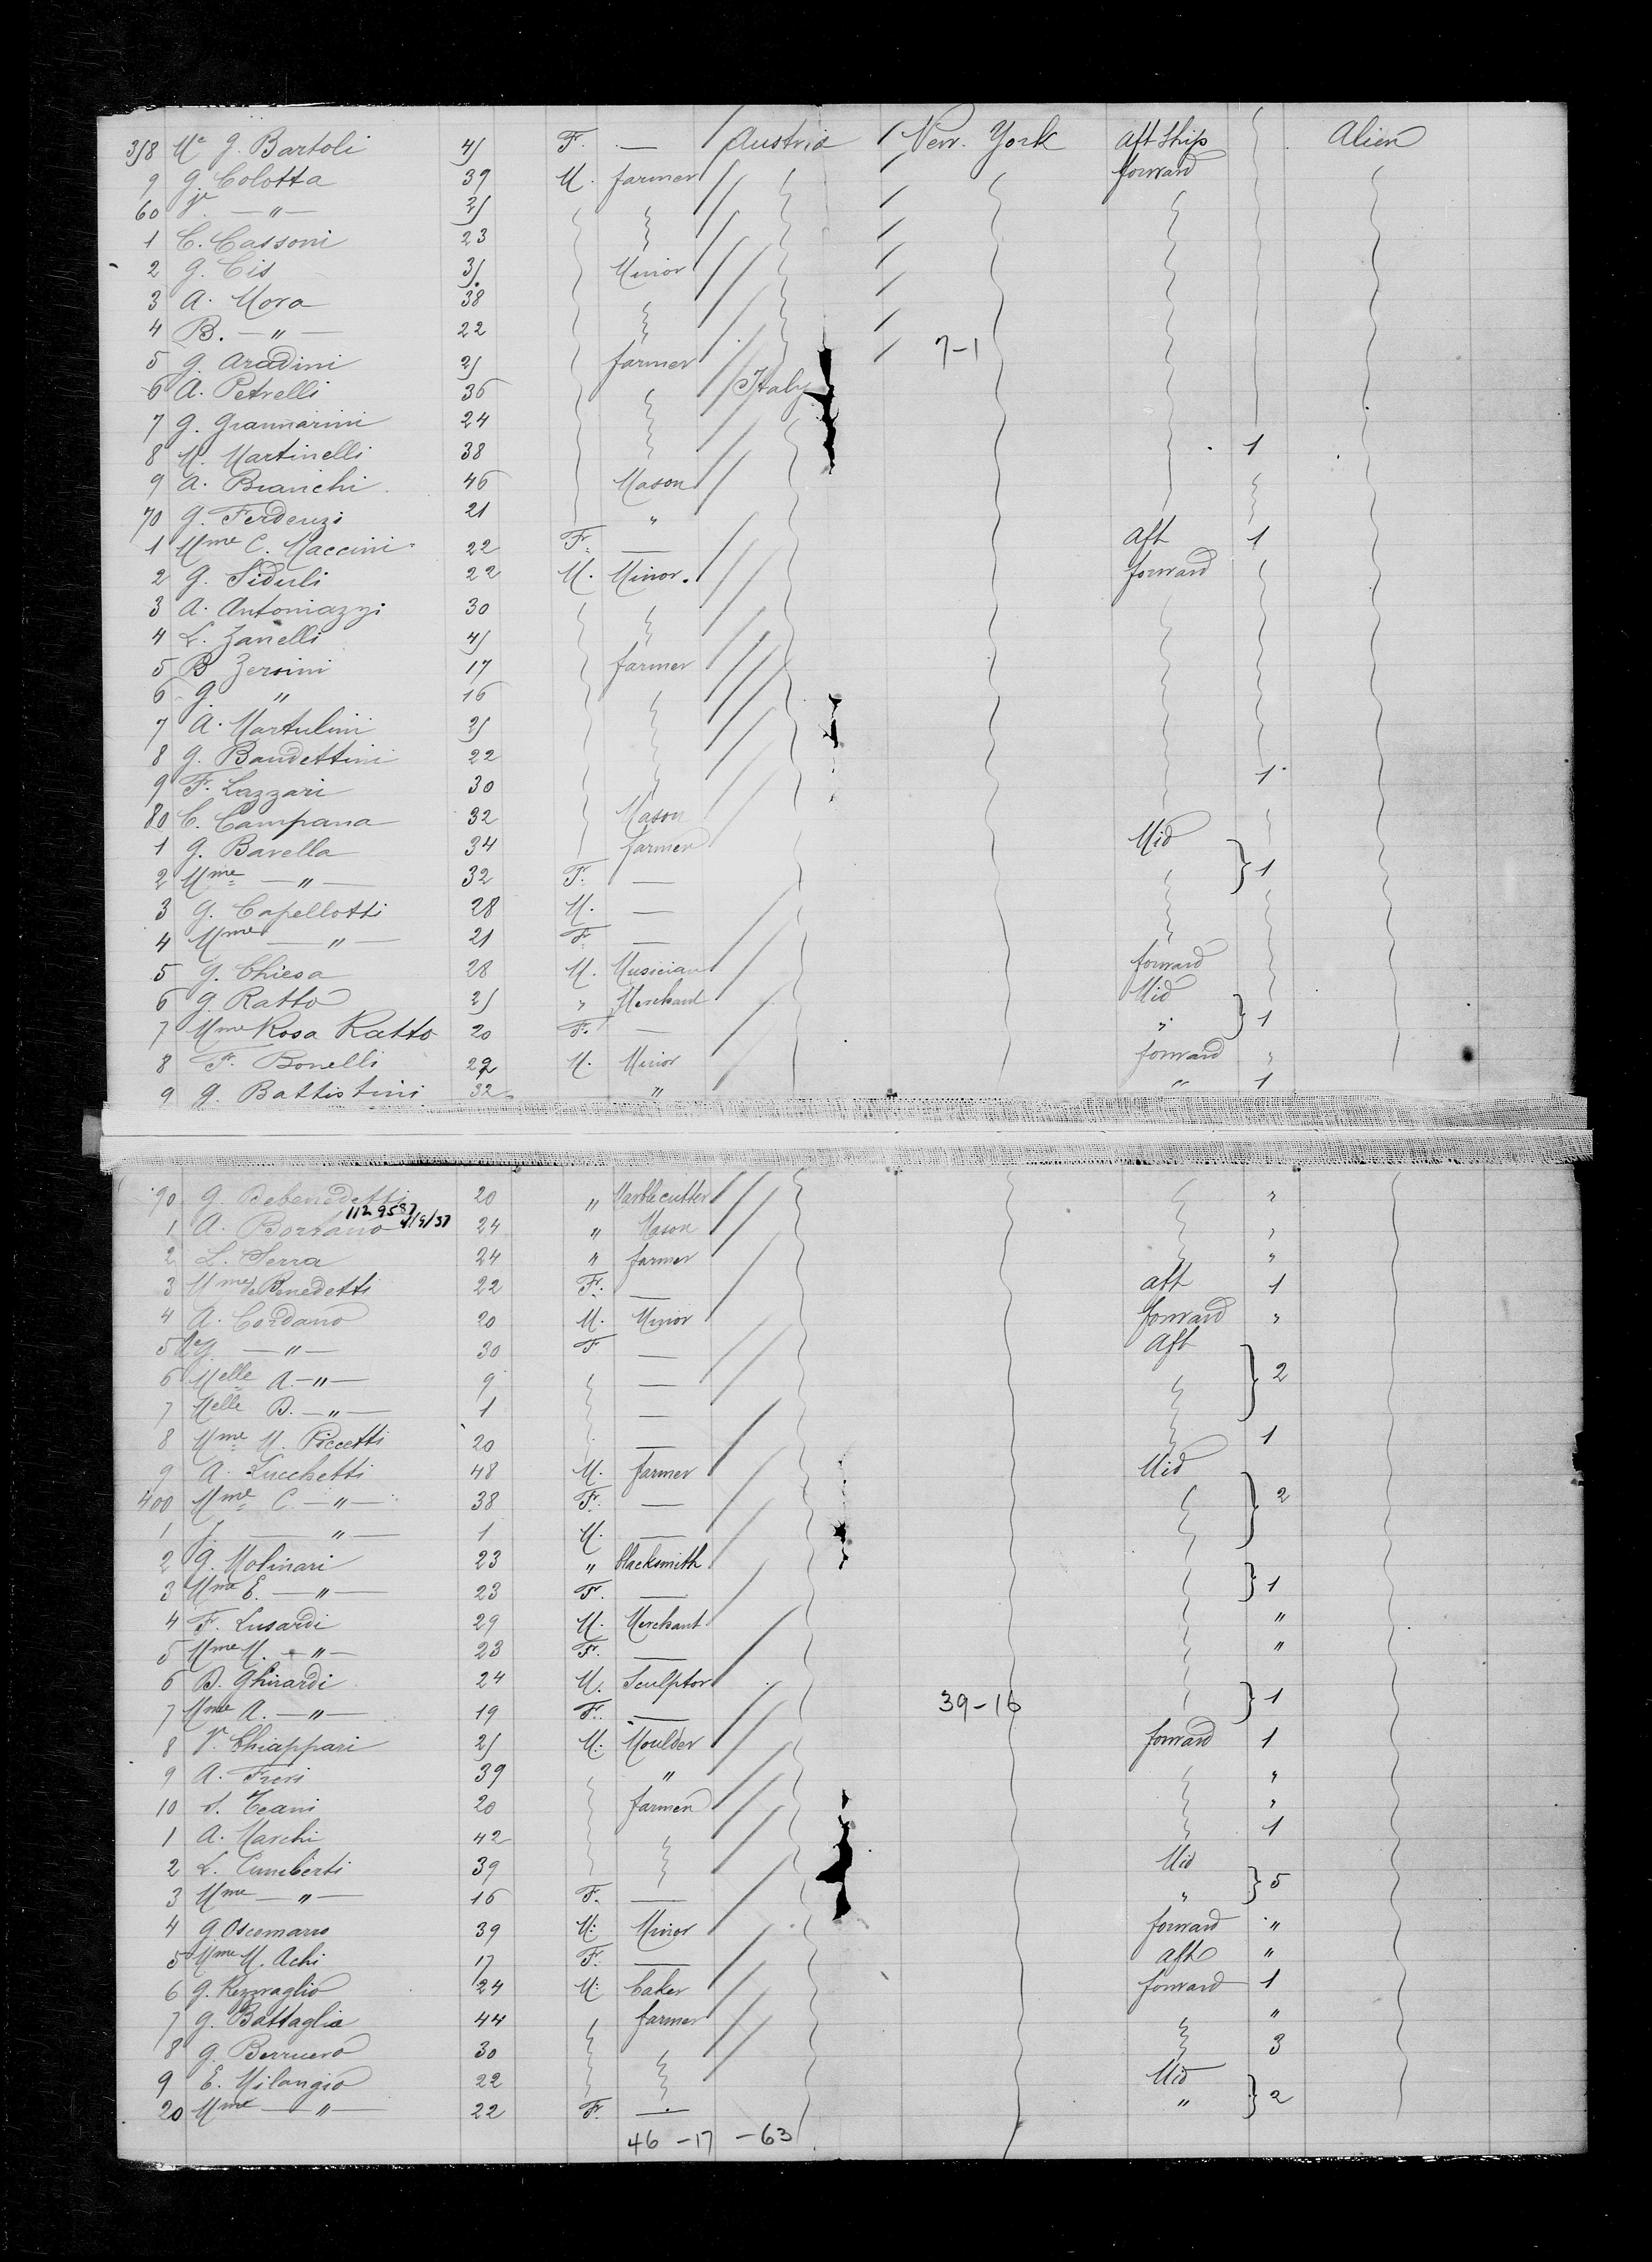 358 Me G. Bartoli 45 F. — Austria New York Aft Ship Alien
9 G. Colotta 39 M. farmer forward
60 V. —"— 25
1 C. Cassoni 23
2 G. Cis 35 Minor
3 A. Mora 38
4 B. —"— 22
5 G. Aradini 25 farmer 7-1
6 A. Petrelli 36 Italy
7 G. Giannarini 24
8 M. Martinelli 38 1
9 A. Bianchi 46 Mason
70 G. Ferdenzi 21 "
1 Mme C. Maccini 22 F. — Aft 1
2 G. Siduli 22 M. Minor. forward
3 A. Antoniazzi 30
4 L. Zanelli 45
5 B Zersini 17 farmer
6 G. " 16
7 A. Martulini 25
8 G. Baudettini 22
9 F. Lazzari 30 1
80 C. Campana 32 Mason
1 G. Bavella 34 farmer Mid
2 Mme —"— 32 F. — } 1
3 G. Capellotti 28 M. —
4 Mme —"— 21 F. —
5 G. Chiesa 28 M. Musician forward
6 G. Ratto 25 " Merchant Mid
7 Mme Rosa Ratto 20 F. — " } 1
8 F. Bonelli 22 M. Minor forward "
9 G. Battistini 32 " " 1
90 G. Debenedetti 20 " Marblecutter "
112 9587
1 A. Borzano 4/9/37 24 " Mason "
2 L. Serra 24 " farmer "
3 Mme de Benedetti 22 F. — aft 1
4 A. Cordano 20 M. Minor forward "
5 G. —"— 30 F — Aft
6 Melle A. —"— 9 — } 2
7 Melle B. —"— 1 —
8 Mme M. Piccetti 20 — 1
9 A. Lucchetti 48 M. farmer Mid
400 Mme C. —"— 38 F. — } 2
1 J. —"— 1 M. —
2 G. Molinari 23 " blacksmith
3 Mme E. —"— 23 F. — } 1
4 F. Lusardi 29 M. Merchant "
5 Mme M. —"— 23 F. — "
6 B. Ghirardi 24 M. Sculptor
7 Mme A. —"— 19 F. — 39-16 } 1
8 V. Chiappari 25 M. Moulder forward 1
9 A. Freri 39 " "
10 S. Teani 20 farmer "
1 A. Marchi 42 1
2 L. Cumberti 39 Mid
3 Mme —"— 16 F. — " } 5
4 G. Oscomarro 39 M. Minor forward "
5 Mme M. Achi 17 F. — aft "
6 G. Rezzoaglio 24 M. baker forward 1
7 G. Battaglia 44 farmer "
8 G. Berruero 30 3
9 E. Milangio 22 Mid
20 Mme —"— 22 F. — " } 2
46 -17 -63